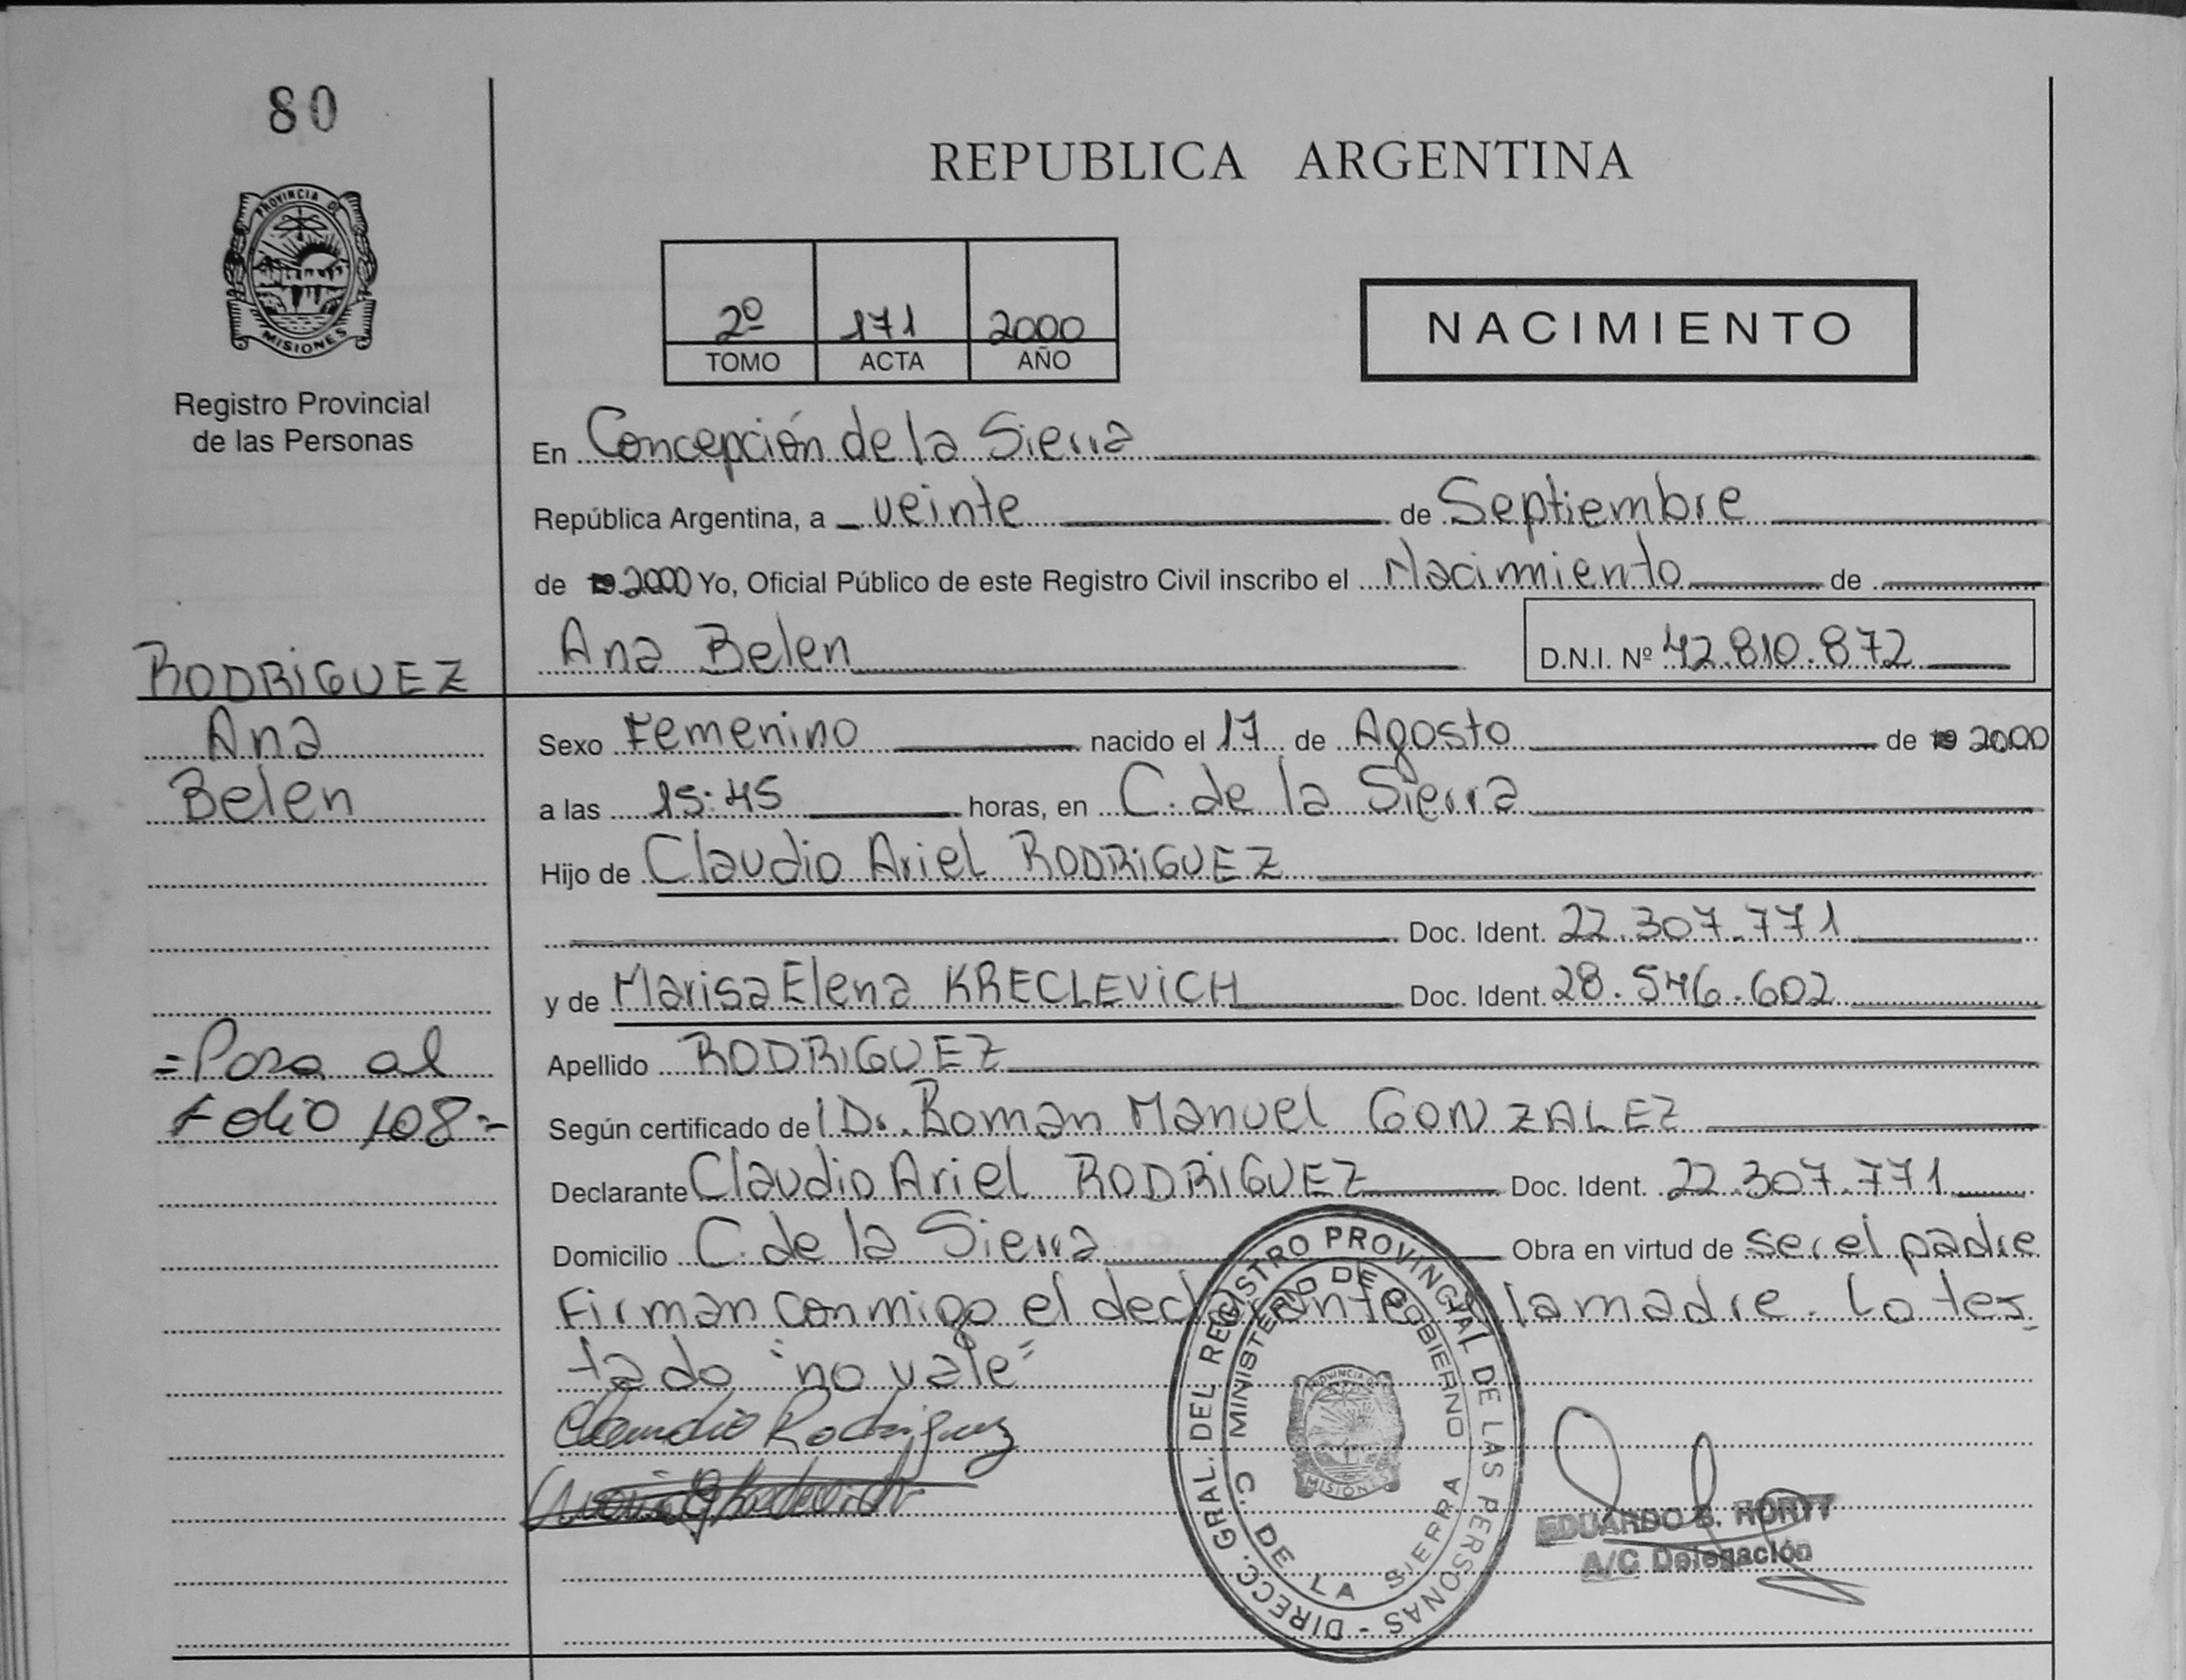 80
PROVINCIA DE
MISIONES
Registro Provincial
de las Personas
REPUBLICA ARGENTINA
2º 171 2000
TOMO ACTA AÑO
NACIMIENTO
En Concepción de la Sierra
República Argentina, a veinte de Septiembre
de 19 2000 Yo, Oficial Público de este Registro Civil inscribo el Nacimiento de
Ana Belen D.N.I. Nº 42.810.872
RODRIGUEZ
Ana
Belen
Sexo Femenino nacido el 17 de Agosto de 19 2000
a las 15:45 horas, en C. de la Sierra
Hijo de Claudio Ariel RODRIGUEZ
Doc. Ident. 22.307.771
y de Marisa Elena KRECLEVICH Doc. Ident. 28.546.602
=Pasa al
Folio 108=
Apellido RODRIGUEZ
Según certificado de Dr. Roman Manuel GONZALEZ
Declarante Claudio Ariel RODRIGUEZ Doc. Ident. 22.307.771
Domicilio C. de la Sierra Obra en virtud de ser el padre
Firman conmigo el declarante la madre. Lo tes
tado "no vale"
Claudio Rodriguez
DIRECC. GRAL. DEL REGISTRO PROVINCIAL DE LAS PERSONAS -
MINISTERIO DE GOBIERNO
C. DE LA SIERRA
PROVINCIA DE
MISIONES
EDUARDO B. RORTY
A/C Delegación